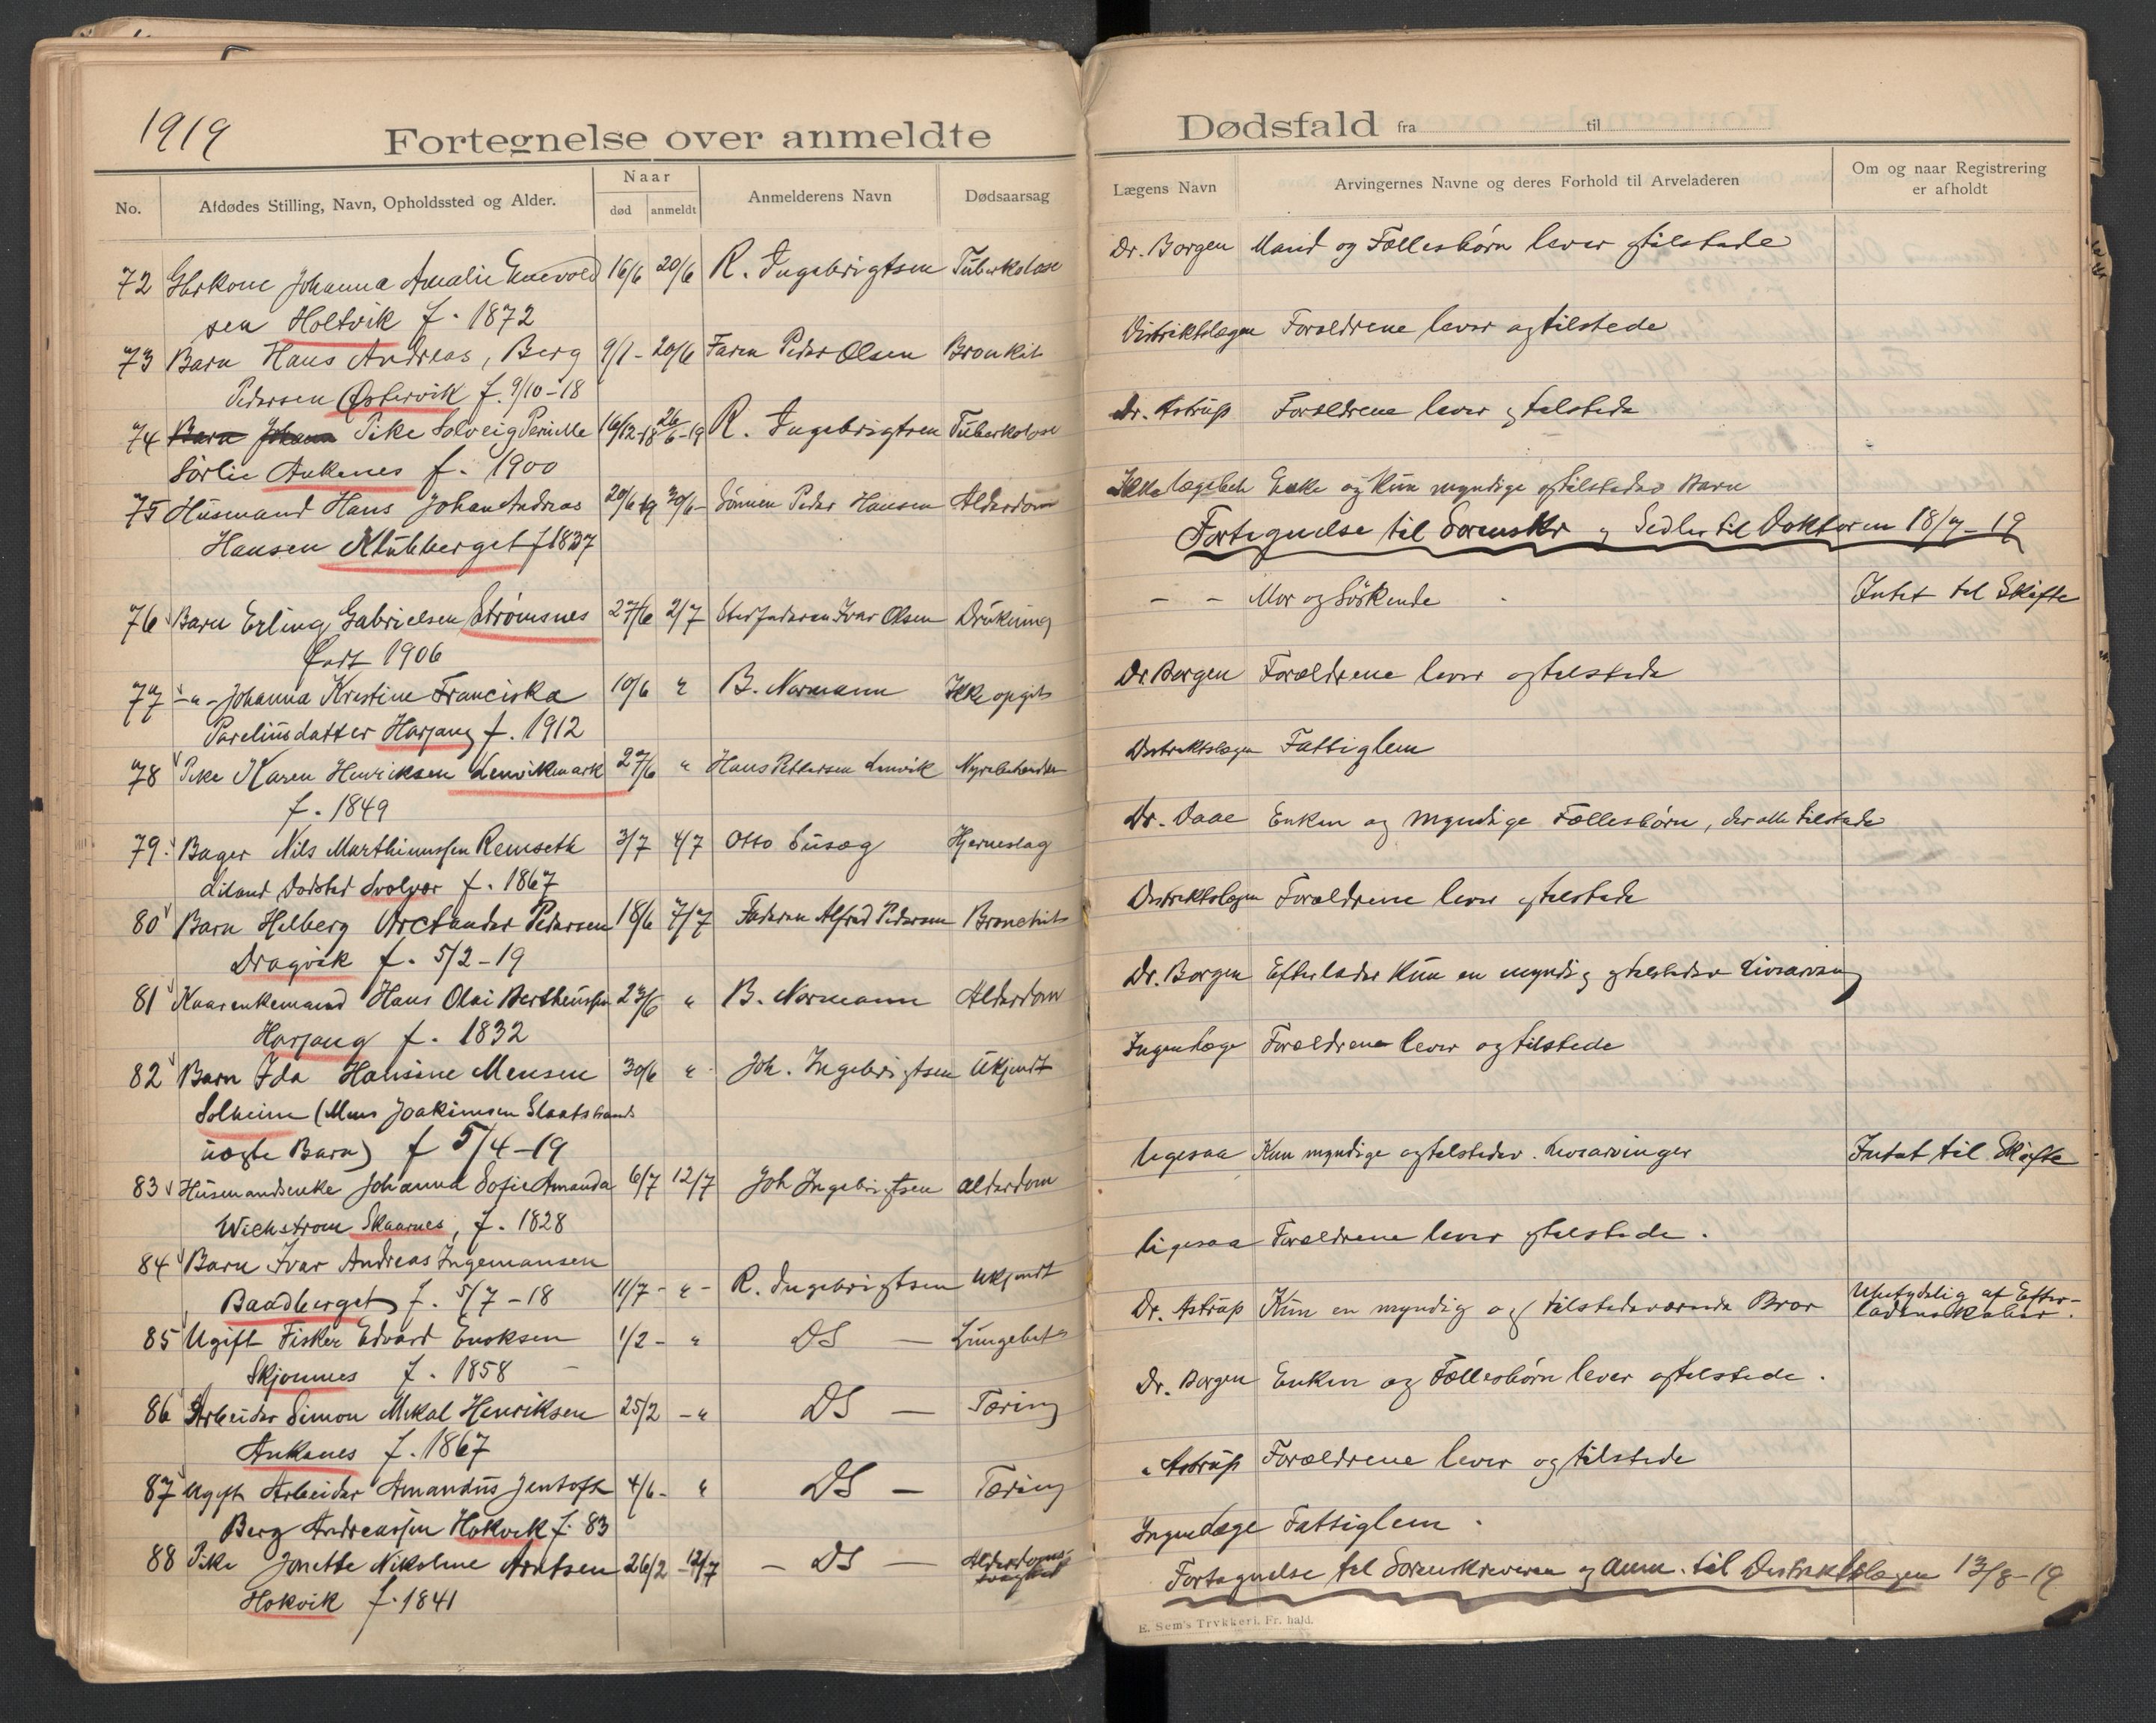 1919
Fortegnelse over anmeldte
No.
Afdødes Stilling, Navn, Opholdssted og Alder.
Naar
død
anmeldt
Anmelderens Navn
Dødsaarsag
72 Gbrkone Johanna Amalie Enevold 16/6 20/6 R. Ingebrigtsen Tuberkolose
sen Holtvik f. 1872
73 Barn Hans Andreas, Berg 9/1 - 20/6 Faren Peder Olsen Bronkit
Pedersen Østervik f. 9/10-18
74 Barn Johan Pike Solveig Pernille 16/12-18 26/6-19 R. Ingebrigtsen Tuberkolose
Sørlie Ankenes f. 1900
75 Husmand Hans Johan Andreas 20/6 19 30/6- Sønnen Peder Hansen Alderdom
Hansen Klubberget f 1837
76 Barn Erling Gabrielsen Strømsnes 27/6 2/7 Stedfaderen Ivar Olsen Drukning
født 1906
77 -"- Johanna Kristine Franciska 10/6 " B. Normann Ikke opgit
Pareliusdatter Harjang f. 1912
78 Pike Karen Henriksen Lenvikmark 27/6 " Hans Pettersen Lenvik
f. 1849
79 Bager Nils Marthinussen Remseth 3/7 4/7 Otto Susæg Hjerneslag
Liland Dødsted Svolvær f. 1867
80 Barn Helberg Arctander Pedersen 18/6 7/7 Faderen Alfred Pedersen Bronchit
Dragvik f. 5/2-19
81 Kaarenkemand Hans Olai Bertheussen 23/6 " B. Normann Alderdom
Harjang f. 1832
82 Barn Ida Hansine Mensen 30/6 " Joh. Ingebrigtsen Ukjendt
Solheim (Mens Joakimsen Slaatsbrands
uægte Barn) f 5/4-19
83 Husmandsenke Johanna Sofie Amanda 6/7 12/7 Joh Ingebrigtsen Alderdom
Wickstrøm Skaarnes, f. 1828
84 Barn Ivar Andreas Ingemansen
Baadberget f. 5/7-18 11/7- " - R. Ingebrigtsen Ukjendt
85 Ugift Fisker Edvard Enoksen 1/2- " DS — Lungebet
Skjomnes f. 1858
86 Arbeider Simon Mikal Henriksen 25/2 - " DS — Tæring
Ankenes f. 1867
87 Ugift Arbeider Amandus Jentoft 4/6- " DS — Tæring
Berg Andreassen Hokvik f. 83
88 Pike Jonette Nikoline Arntsen 26/2 - 12/7 — DS — Alderdoms-
svaghed
Hokvik f. 1841
Dødsfald fra til
Lægens Navn
Arvingernes Navne og deres Forhold til Arveladeren
Om og naar Registrering
er afholdt
Dr. Borgen Mand og Fællesbørn lever og tilstede
Distriktslægen Forældrene lever og tilstede
Dr. Astrup Forældrene lever og tilstede
Ikke lægebeh Enke og kun myndige og tilstedev Børn
Fortegnelse til Sorenskr og Sedler til Doktoren 18/7-19
- - Mor og Søskende Intet til Skifte
Dr Borgen Forældrene lever og tilstede
Distriktslægen Fattiglem
Dr. Daae Enken og myndige Fællesbørn, der alle tilstede
Distriktslægen Forældrene lever og tilstede
Dr. Borgen Efterlader kun en myndig og tilstedev Livsarving
Ingen læge Forældrene lever og tilstede
ligesaa Kun myndige og tilstedev. Livsarvinger Intet til Skifte
ligesaa Forældrene lever og tilstede.
Dr. Astrup Kun en myndig og tilstedeværende Bror Ubetydelig af Efter-
ladenskaber.
Dr. Borgen Enken og Fællesbørn lever og tilstede.
" Astrup Forældrene lever og tilstede
Ingen læge Fattiglem.
Fortegnelse til Sorenskriveren og Anm. til Distriktslægen 13/8-19
E. Sem's Trykkeri, Fr. hald.